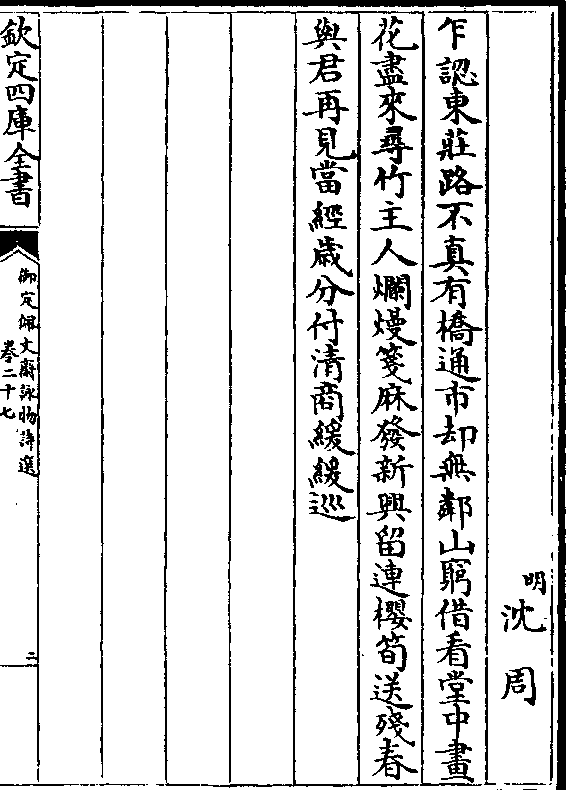 明沈周
乍認東莊路不真有橋通市却無鄰山窮借看堂中畫
花盡來尋竹主人爛熳箋麻發新興留連櫻筍送殘春
與君再見當經歲分付清商緩緩巡
欽定四庫全書
御定佩文齋詠物詩選
卷二十七
二